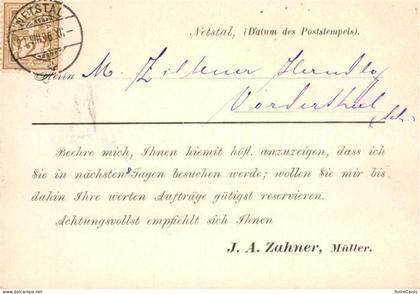 NETSTAL
Netstal, (Datum des Poststempels).
Herrn M. Ziltener Handlg
Vorderthal
Beehre mich, Ihnen hiemit höfl. anzuzeigen, dass ich
Sie in nächsten 8 Tagen besuchen werde; wollen Sie mir bis
dahin Ihre werten Aufträge gütigst reservieren.
Achtungsvollst empfiehlt sich Ihnen
J. A. Zahner, Müller.